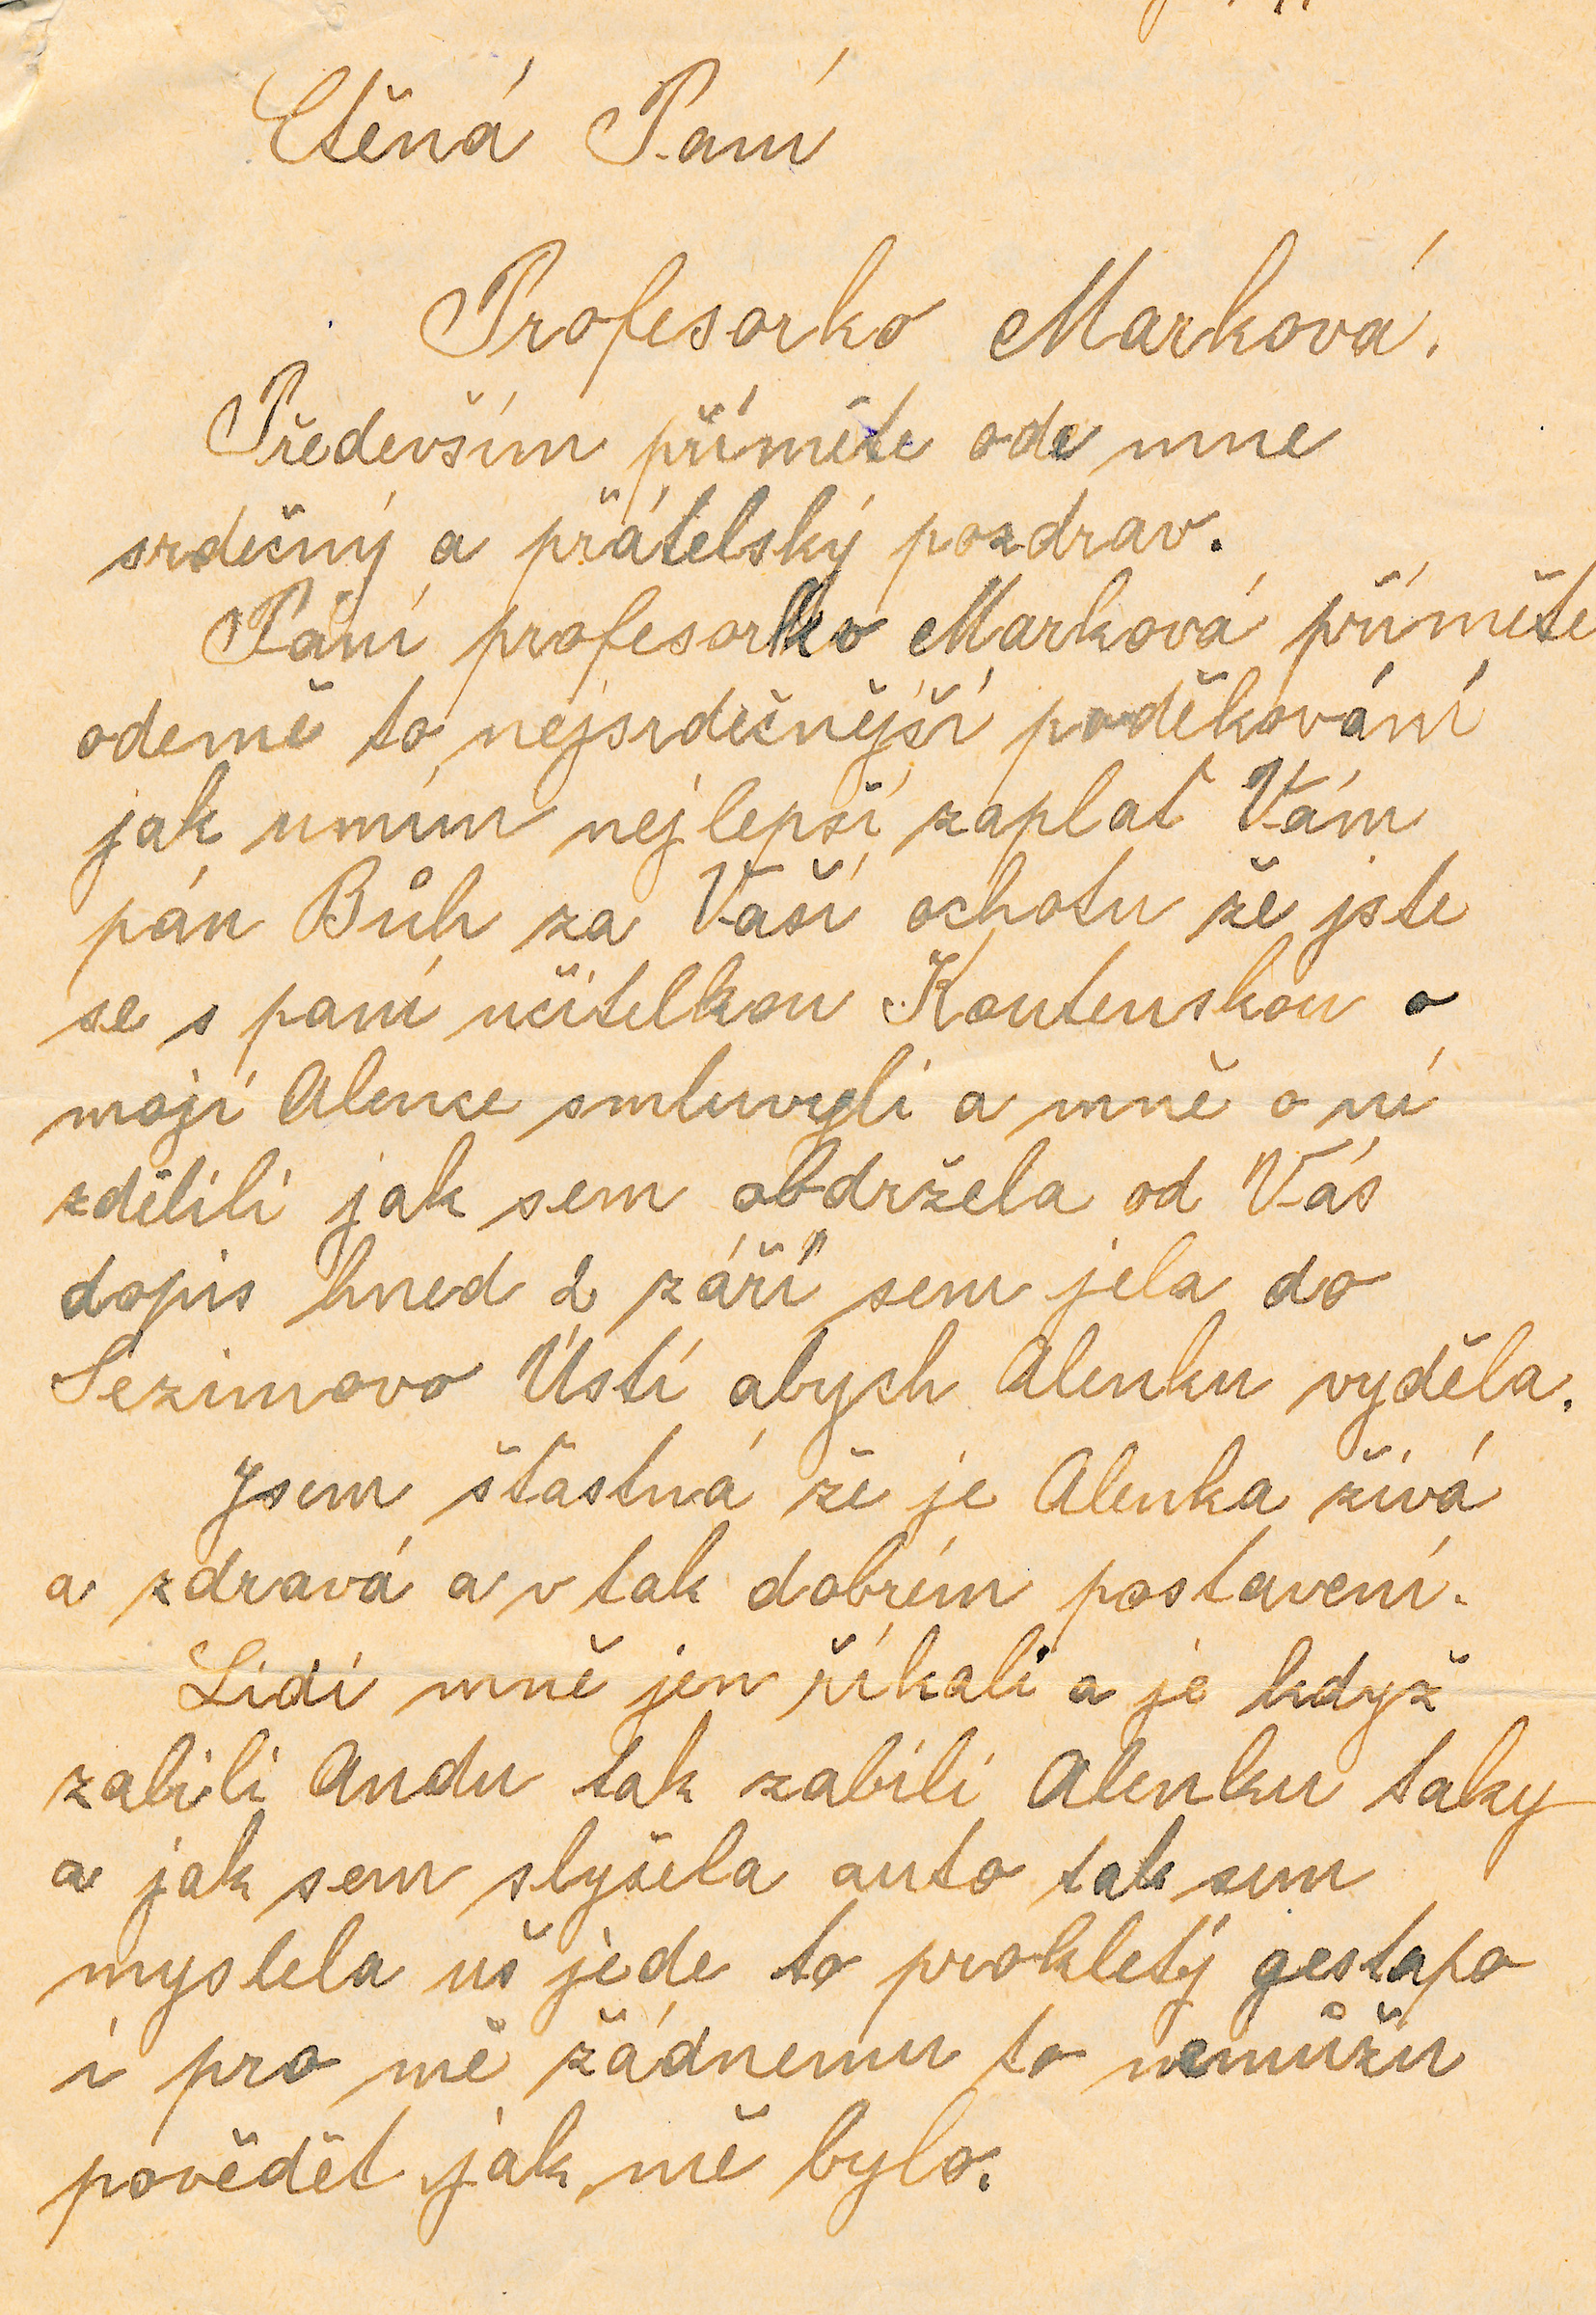 Ctěná Paní
Profesorko Marková.
Především příměte ode mne
srdečný a přátelský pozdrav.
Paní profesorko Marková příměte
odemě to nejsrdečnější poděkování
jak umím nejlepší zaplať Vám
pán Bůh za Vaší ochotu že jste
se s paní učitelkou Koutenskou o
mojí Alence smluvyli a mně o ní
zdělili jak sem obdržela od Vás
dopis hned 2 září sem jela do
Sezimovo Ústí abych Alenku vyděla.
Jsem šťastná že je Alenka živá
a zdravá a v tak dobrém postavení.
Lidi mně jen říkali a je když
zabili Andu tak zabili Alenku taky
a jak sem slyšela auto tak sem
myslela uš jede to prokletý gestapo
i pro mě žádnemu to nemůžu
povědět jak mě bylo.